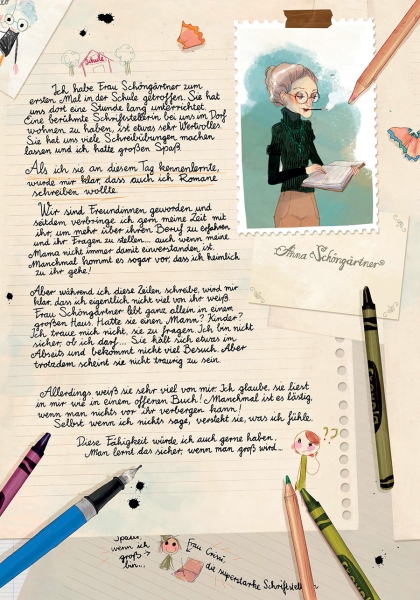 Schule
Ich habe Frau Schöngärtner zum
ersten Mal in der Schule getroffen. Sie hat
uns dort eine Stunde lang unterrichtet.
Eine berühmte Schriftstellerin bei uns im Dorf
wohnen zu haben, ist etwas sehr Wertvolles.
Sie hat uns viele Schreibübungen machen
lassen und ich hatte großen Spaß.
Als ich sie an diesem Tag kennenlernte,
wurde mir klar, dass auch ich Romane
schreiben wollte.
Wir sind Freundinnen geworden und
seitdem verbringe ich gern meine Zeit mit
ihr, um mehr über ihren Beruf zu erfahren
und ihr Fragen zu stellen... auch wenn meine
Mama nicht immer damit einverstanden ist.
Manchmal kommt es sogar vor, dass ich heimlich
zu ihr gehe!
Anna Schöngärtner
Aber während ich diese Zeilen schreibe, wird mir
klar, dass ich eigentlich nicht viel von ihr weiß.
Frau Schöngärtner lebt ganz allein in einem
großen Haus. Hatte sie einen Mann? Kinder?
Ich traue mich nicht, sie zu fragen. Ich bin nicht
sicher, ob ich darf... Sie hält sich etwas im
Abseits und bekommt nicht viel Besuch. Aber
trotzdem scheint sie nicht traurig zu sein.
Allerdings weiß sie sehr viel von mir. Ich glaube, sie liest
in mir wie in einem offenen Buch! Manchmal ist es lästig,
wenn man nichts vor ihr verbergen kann!
Selbst wenn ich nichts sage, versteht sie, was ich fühle.
Diese Fähigkeit würde ich auch gerne haben.
Man lernt das sicher, wenn man groß wird...
??
später,
wenn ich
groß →
bin...
Frau Cerise
die superstarke